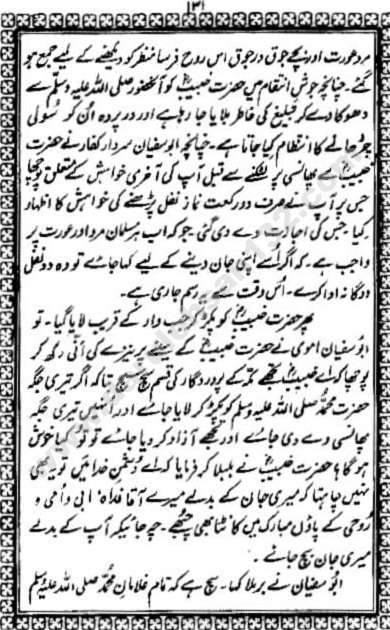 ۱۳۱
مرد عورت اور بچے جوق در جوق اس روح فرسا منظر کو دیکھنے کے لیے جمع ہو
گئے۔ چنانچہ جوشِ انتقام میں حضرت خبیبؓ کو آنحضور صلی اللہ علیہ وسلم سے
دھوکا دے کر تبلیغ کی خاطر بلایا جا رہا ہے اور در پردہ اُن کو سُولی
چڑھانے کا انتظام کیا جاتا ہے۔ چنانچہ ابوسفیان سردار کفار نے حضرت
خبیبؓ سے پھانسی پر لٹکنے سے قبل آپ کی آخری خواہش کے متعلق پوچھا
جس پر آپ نے صرف دو رکعت نماز نفل پڑھنے کی خواہش کا اظہار
کیا، جس کی اجازت دے دی گئی۔ جو کہ اب ہر مسلمان مرد اور عورت پر
واجب ہے۔ کہ اگر اُسے اپنی جان دینے کے لیے کہا جائے تو وہ دو نفل
دوگانہ ادا کرے۔ اُس وقت سے یہ رسم جاری ہے۔
پھر حضرت خبیبؓ کو پکڑ کر جب دار کے قریب لایا گیا۔ تو
ابوسفیان اموی نے حضرت خبیبؓ کے سینے پر نیزے کی اَنی رکھ کر
پوچھا کہ اے خبیبؓ تجھے مکہ کے پروردگار کی قسم سچ سچ بتا کہ اگر تیری جگہ
حضرت محمد صلی اللہ علیہ وسلم کو پکڑ کر لایا جائے اور انہیں تیری جگہ
پھانسی دے دی جائے اور تجھے آزاد کر دیا جائے تو تُو کیا خوش
ہوگا؟ حضرت خبیبؓ نے بلبلا کر فرمایا کہ اے دشمنِ خدا میں تو یہ بھی
نہیں چاہتا کہ میری جان کے بدلے میرے آقا فداہ ابی و امی و
رُوحی کے پاؤں مبارک میں کانٹا بھی چُبھے۔ چہ جائیکہ آپ کے بدلے
میری جان بچ جائے۔
ابوسفیان نے برملا کہا۔ سچ ہے کہ تمام غلامانِ محمد صلی اللہ علیہ وسلم